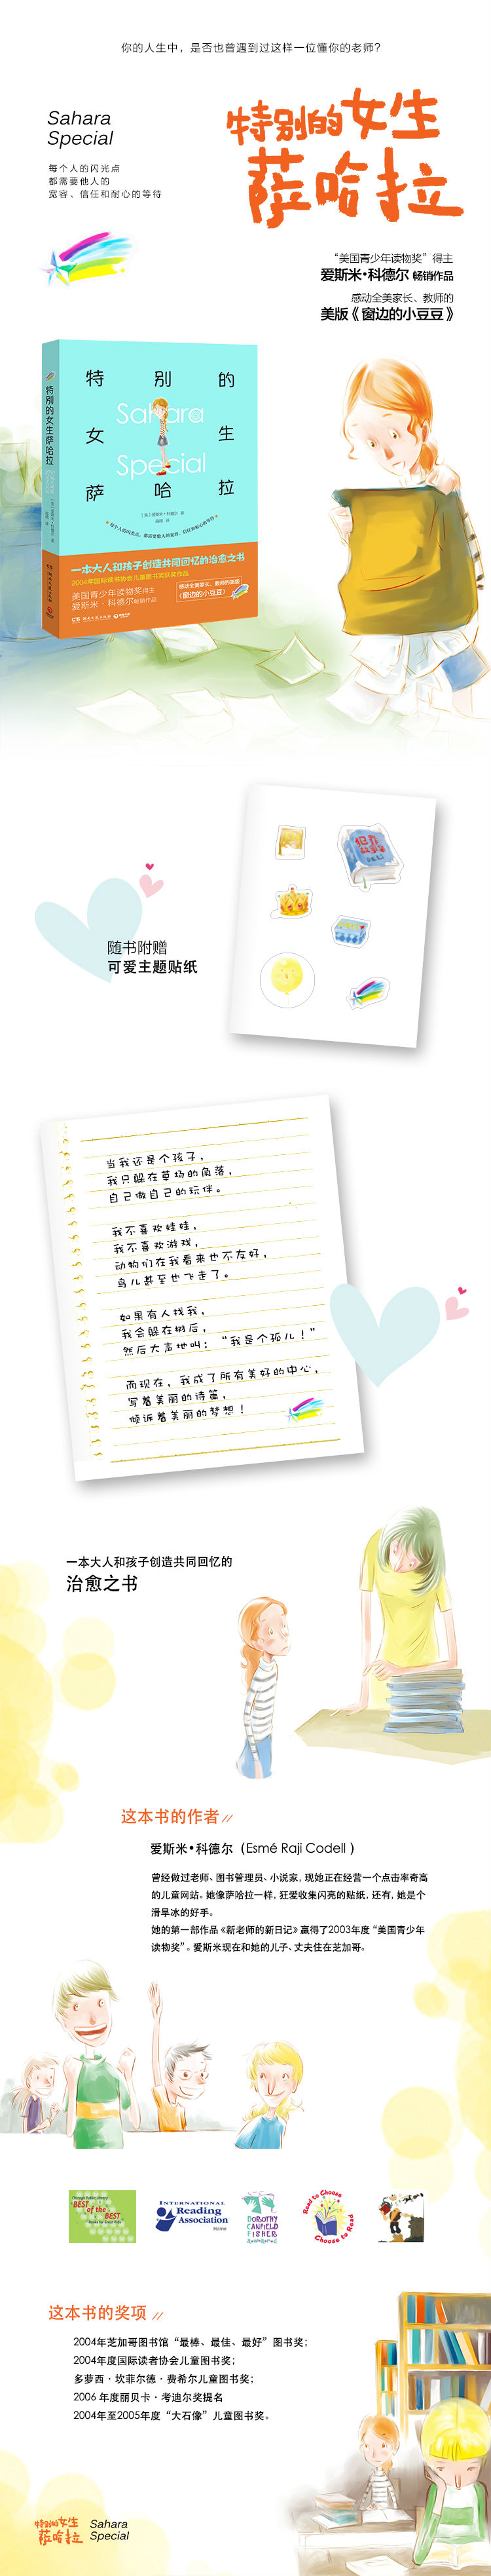 你的人生中，是否也曾遇到过这样一位懂你的老师?
Sahara
Special
每个人的闪光点
都需要他人的
宽容、信任和耐心的等待
特别的女生
萨哈拉
“美国青少年读物奖”得主
爱斯米·科德尔 畅销作品
感动全美家长、教师的
美版《窗边的小豆豆》
特别的女生萨哈拉
特 别 的
Sahara
女 生
Special
萨 哈 拉
一本大人和孩子创造共同回忆的治愈之书
2004年国际读书协会儿童图书奖获奖作品
美国青少年读物奖得主
爱斯米·科德尔畅销作品
感动全美家长、教师的美版
《窗边的小豆豆》
随书附赠
可爱主题贴纸
当我还是个孩子，
我只躲在草场的角落，
自己做自己的玩伴。
我不喜欢娃娃，
我不喜欢游戏，
动物们在我看来也不友好，
鸟儿甚至也飞走了。
如果有人找我，
我会躲在树后，
然后大声地叫：“我是个孤儿！”
而现在，我成了所有美好的中心，
写着美丽的诗篇，
倾诉着美丽的梦想！
一本大人和孩子创造共同回忆的
治愈之书
这本书的作者//
爱斯米·科德尔（Esmé Raji Codell ）
曾经做过老师、图书管理员、小说家，现她正在经营一个点击率奇高
的儿童网站。她像萨哈拉一样，狂爱收集闪亮的贴纸，还有，她是个
滑旱冰的好手。
她的第一部作品《新老师的新日记》赢得了2003年度“美国青少年
读物奖”。爱斯米现在和她的儿子、丈夫住在芝加哥。
BEST
of the
BEST
INTERNATIONAL
Reading
Association
Home
DOROTHY
CANFIELD
FISHER
Read to Choose
Choose to Read
这本书的奖项 //
2004年芝加哥图书馆“最棒、最佳、最好”图书奖；
2004年度国际读者协会儿童图书奖；
多萝西·坎菲尔德·费希尔儿童图书奖；
2006 年度丽贝卡·考迪尔奖提名
2004年至2005年度“大石像”儿童图书奖。
特别的女生
萨哈拉
Sahara
Special